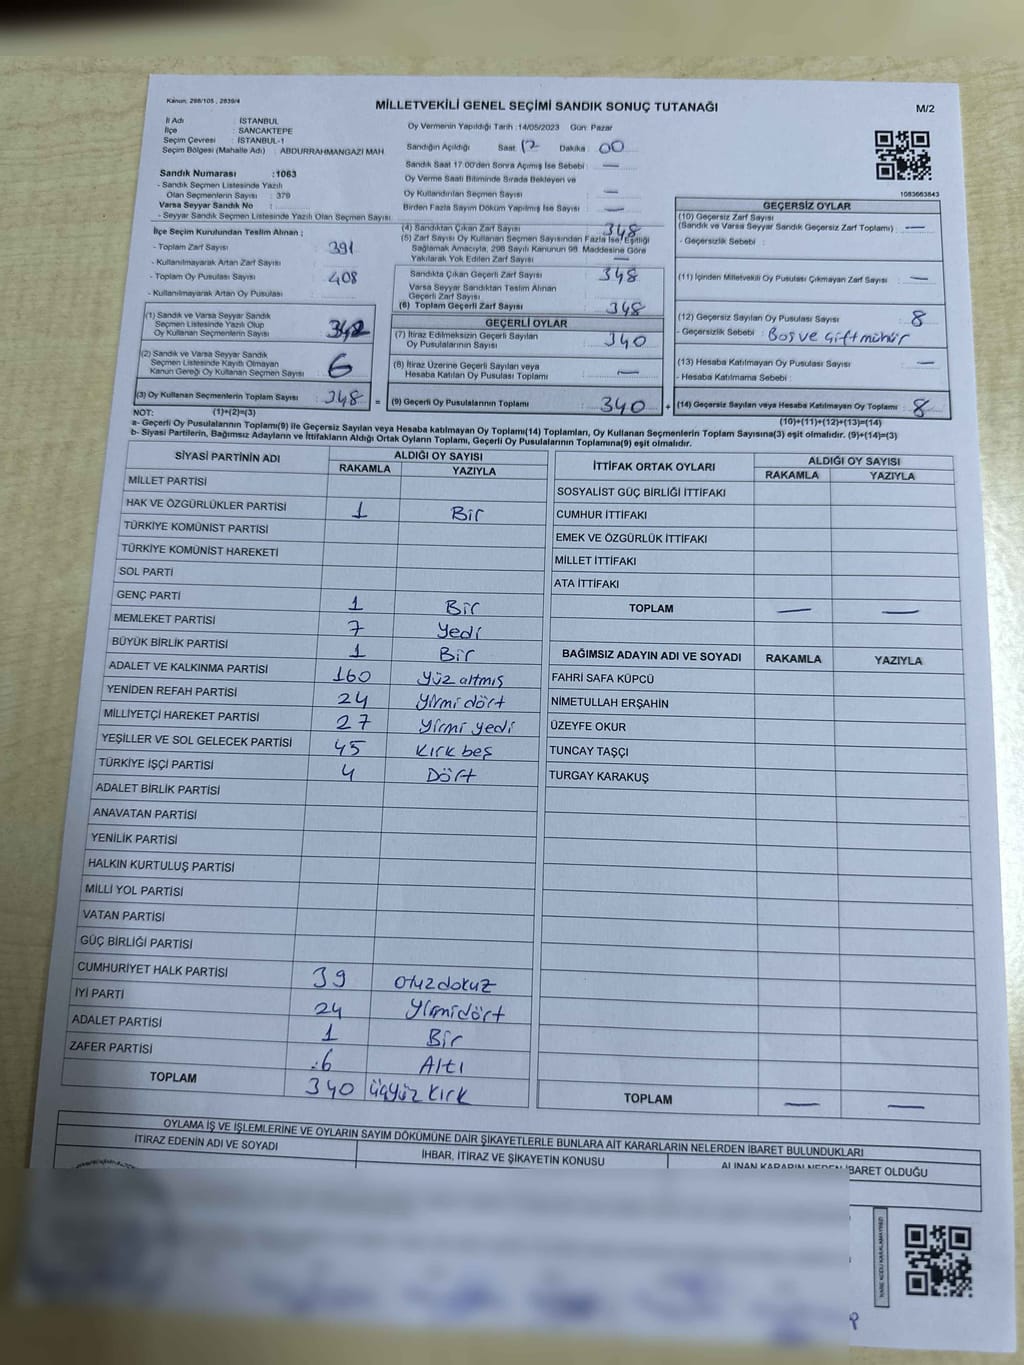 Kanun: 298/105 , 2839/4
MİLLETVEKİLİ GENEL SEÇİMİ SANDIK SONUÇ TUTANAĞI
M/2
İl Adı : İSTANBUL
İlçe : SANCAKTEPE
Seçim Çevresi : İSTANBUL-1
Seçim Bölgesi (Mahalle Adı) : ABDURRAHMANGAZİ MAH.
Sandık Numarası :1063
- Sandık Seçmen Listesinde Yazılı
Olan Seçmenlerin Sayısı : 379
Varsa Seyyar Sandık No :
- Seyyar Sandık Seçmen Listesinde Yazılı Olan Seçmen Sayısı
Oy Vermenin Yapıldığı Tarih :14/05/2023 Gün: Pazar
Sandığın Açıldığı Saat 17 Dakika : 00
Sandık Saat 17.00'den Sonra Açılmış İse Sebebi : —
Oy Verme Saati Bitiminde Sırada Bekleyen ve
Oy Kullandırılan Seçmen Sayısı : —
Birden Fazla Sayım Döküm Yapılmış İse Sayısı : —
1083663843
İlçe Seçim Kurulundan Teslim Alınan ;
- Toplam Zarf Sayısı : 391
- Kullanılmayarak Artan Zarf Sayısı :
- Toplam Oy Pusulası Sayısı : 408
- Kullanılmayarak Artan Oy Pusulası :
(1) Sandık ve Varsa Seyyar Sandık
Seçmen Listesinde Yazılı Olup
Oy Kullanan Seçmenlerin Sayısı : 342
(2) Sandık ve Varsa Seyyar Sandık
Seçmen Listesinde Kayıtlı Olmayan
Kanun Gereği Oy Kullanan Seçmen Sayısı : 6
(3) Oy Kullanan Seçmenlerin Toplam Sayısı : 348
(4) Sandıktan Çıkan Zarf Sayısı : 348
(5) Zarf Sayısı Oy Kullanan Seçmen Sayısından Fazla İse; Eşitliği
Sağlamak Amacıyla, 298 Sayılı Kanunun 98. Maddesine Göre
Yakılarak Yok Edilen Zarf Sayısı : —
Sandıkta Çıkan Geçerli Zarf Sayısı : 348
Varsa Seyyar Sandıktan Teslim Alınan
Geçerli Zarf Sayısı :
(6) Toplam Geçerli Zarf Sayısı : 348
GEÇERLİ OYLAR
(7) İtiraz Edilmeksizin Geçerli Sayılan
Oy Pusulalarının Sayısı : 340
(8) İtiraz Üzerine Geçerli Sayılan veya
Hesaba Katılan Oy Pusulası Toplamı : —
= (9) Geçerli Oy Pusulalarının Toplamı : 340
GEÇERSİZ OYLAR
(10) Geçersiz Zarf Sayısı
(Sandık ve Varsa Seyyar Sandık Geçersiz Zarf Toplamı) : —
- Geçersizlik Sebebi :
(11) İçinden Milletvekili Oy Pusulası Çıkmayan Zarf Sayısı : —
(12) Geçersiz Sayılan Oy Pusulası Sayısı : 8
- Geçersizlik Sebebi : Boş ve çift mühür
(13) Hesaba Katılmayan Oy Pusulası Sayısı : —
- Hesaba Katılmama Sebebi :
+ (14) Geçersiz Sayılan veya Hesaba Katılmayan Oy Toplamı : 8
NOT: (1)+(2)=(3)
(10)+(11)+(12)+(13)=(14)
a- Geçerli Oy Pusulalarının Toplamı(9) ile Geçersiz Sayılan veya Hesaba katılmayan Oy Toplamı(14) Toplamları, Oy Kullanan Seçmenlerin Toplam Sayısına(3) eşit olmalıdır. (9)+(14)=(3)
b- Siyasi Partilerin, Bağımsız Adayların ve İttifakların Aldığı Ortak Oyların Toplamı, Geçerli Oy Pusulalarının Toplamına(9) eşit olmalıdır.
SİYASİ PARTİNİN ADI ALDIĞI OY SAYISI
RAKAMLA YAZIYLA
MİLLET PARTİSİ
HAK VE ÖZGÜRLÜKLER PARTİSİ 1 Bir
TÜRKİYE KOMÜNİST PARTİSİ
TÜRKİYE KOMÜNİST HAREKETİ
SOL PARTİ
GENÇ PARTİ 1 Bir
MEMLEKET PARTİSİ 7 Yedi
BÜYÜK BİRLİK PARTİSİ 1 Bir
ADALET VE KALKINMA PARTİSİ 160 Yüz altmış
YENİDEN REFAH PARTİSİ 24 Yirmi dört
MİLLİYETÇİ HAREKET PARTİSİ 27 Yirmi yedi
YEŞİLLER VE SOL GELECEK PARTİSİ 45 Kırk beş
TÜRKİYE İŞÇİ PARTİSİ 4 Dört
ADALET BİRLİK PARTİSİ
ANAVATAN PARTİSİ
YENİLİK PARTİSİ
HALKIN KURTULUŞ PARTİSİ
MİLLİ YOL PARTİSİ
VATAN PARTİSİ
GÜÇ BİRLİĞİ PARTİSİ
CUMHURİYET HALK PARTİSİ 39 otuzdokuz
İYİ PARTİ 24 Yirmidört
ADALET PARTİSİ 1 Bir
ZAFER PARTİSİ 6 Altı
TOPLAM 340 üçyüz kırk
İTTİFAK ORTAK OYLARI ALDIĞI OY SAYISI
RAKAMLA YAZIYLA
SOSYALİST GÜÇ BİRLİĞİ İTTİFAKI
CUMHUR İTTİFAKI
EMEK VE ÖZGÜRLÜK İTTİFAKI
MİLLET İTTİFAKI
ATA İTTİFAKI
TOPLAM — —
BAĞIMSIZ ADAYIN ADI VE SOYADI RAKAMLA YAZIYLA
FAHRİ SAFA KÜPCÜ
NİMETULLAH ERŞAHİN
ÜZEYFE OKUR
TUNCAY TAŞÇI
TURGAY KARAKUŞ
TOPLAM — —
OYLAMA İŞ VE İŞLEMLERİNE VE OYLARIN SAYIM DÖKÜMÜNE DAİR ŞİKAYETLERLE BUNLARA AİT KARARLARIN NELERDEN İBARET BULUNDUKLARI
İTİRAZ EDENİN ADI VE SOYADI
İHBAR, İTİRAZ VE ŞİKAYETİN KONUSU
ALINAN KARARIN NEDEN İBARET OLDUĞU